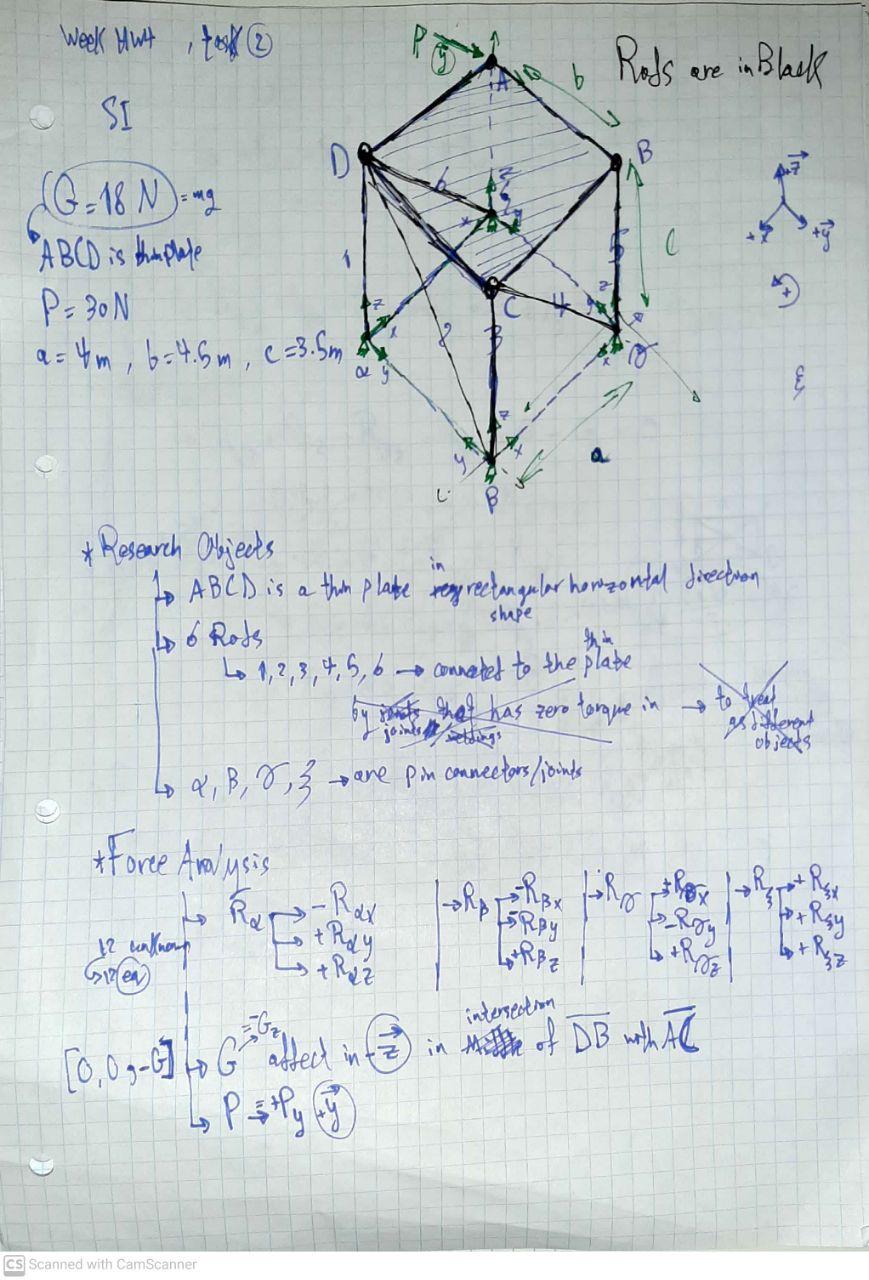 Week HW4 , task ②
SI
Rods are in Black
G = 18 N = mg
ABCD is thin plate
P = 30 N
a = 4 m , b = 4.5 m , c = 3.5 m
P
y
A
b
D
B
6
z
x
y
1
5
C
c
4
2
3
+z
+x
+y
+
α
β
γ
ξ
a
* Research Objects
ABCD is a thin plate in rectangular shape horizontal direction
6 Rods
1, 2, 3, 4, 5, 6 → connected to the thin plate
by joints that has zero torque in → to treat
joints
as different
objects
α, β, γ, ξ → are pin connectors/joints
* Force Analysis
R̄α → - Rαx
+ Rαy
+ Rαz
→ Rβ → -Rβx
-Rβy
+Rβz
→ Rγ → +Rγx
-Rγy
+Rγz
→ Rξ → + Rξx
+ Rξy
+ Rξz
12 unknown
12 eq
[0, 0, -G]
G = -Gz affect in -z in intersection of DB with AC
P = +Py +y
CS Scanned with CamScanner